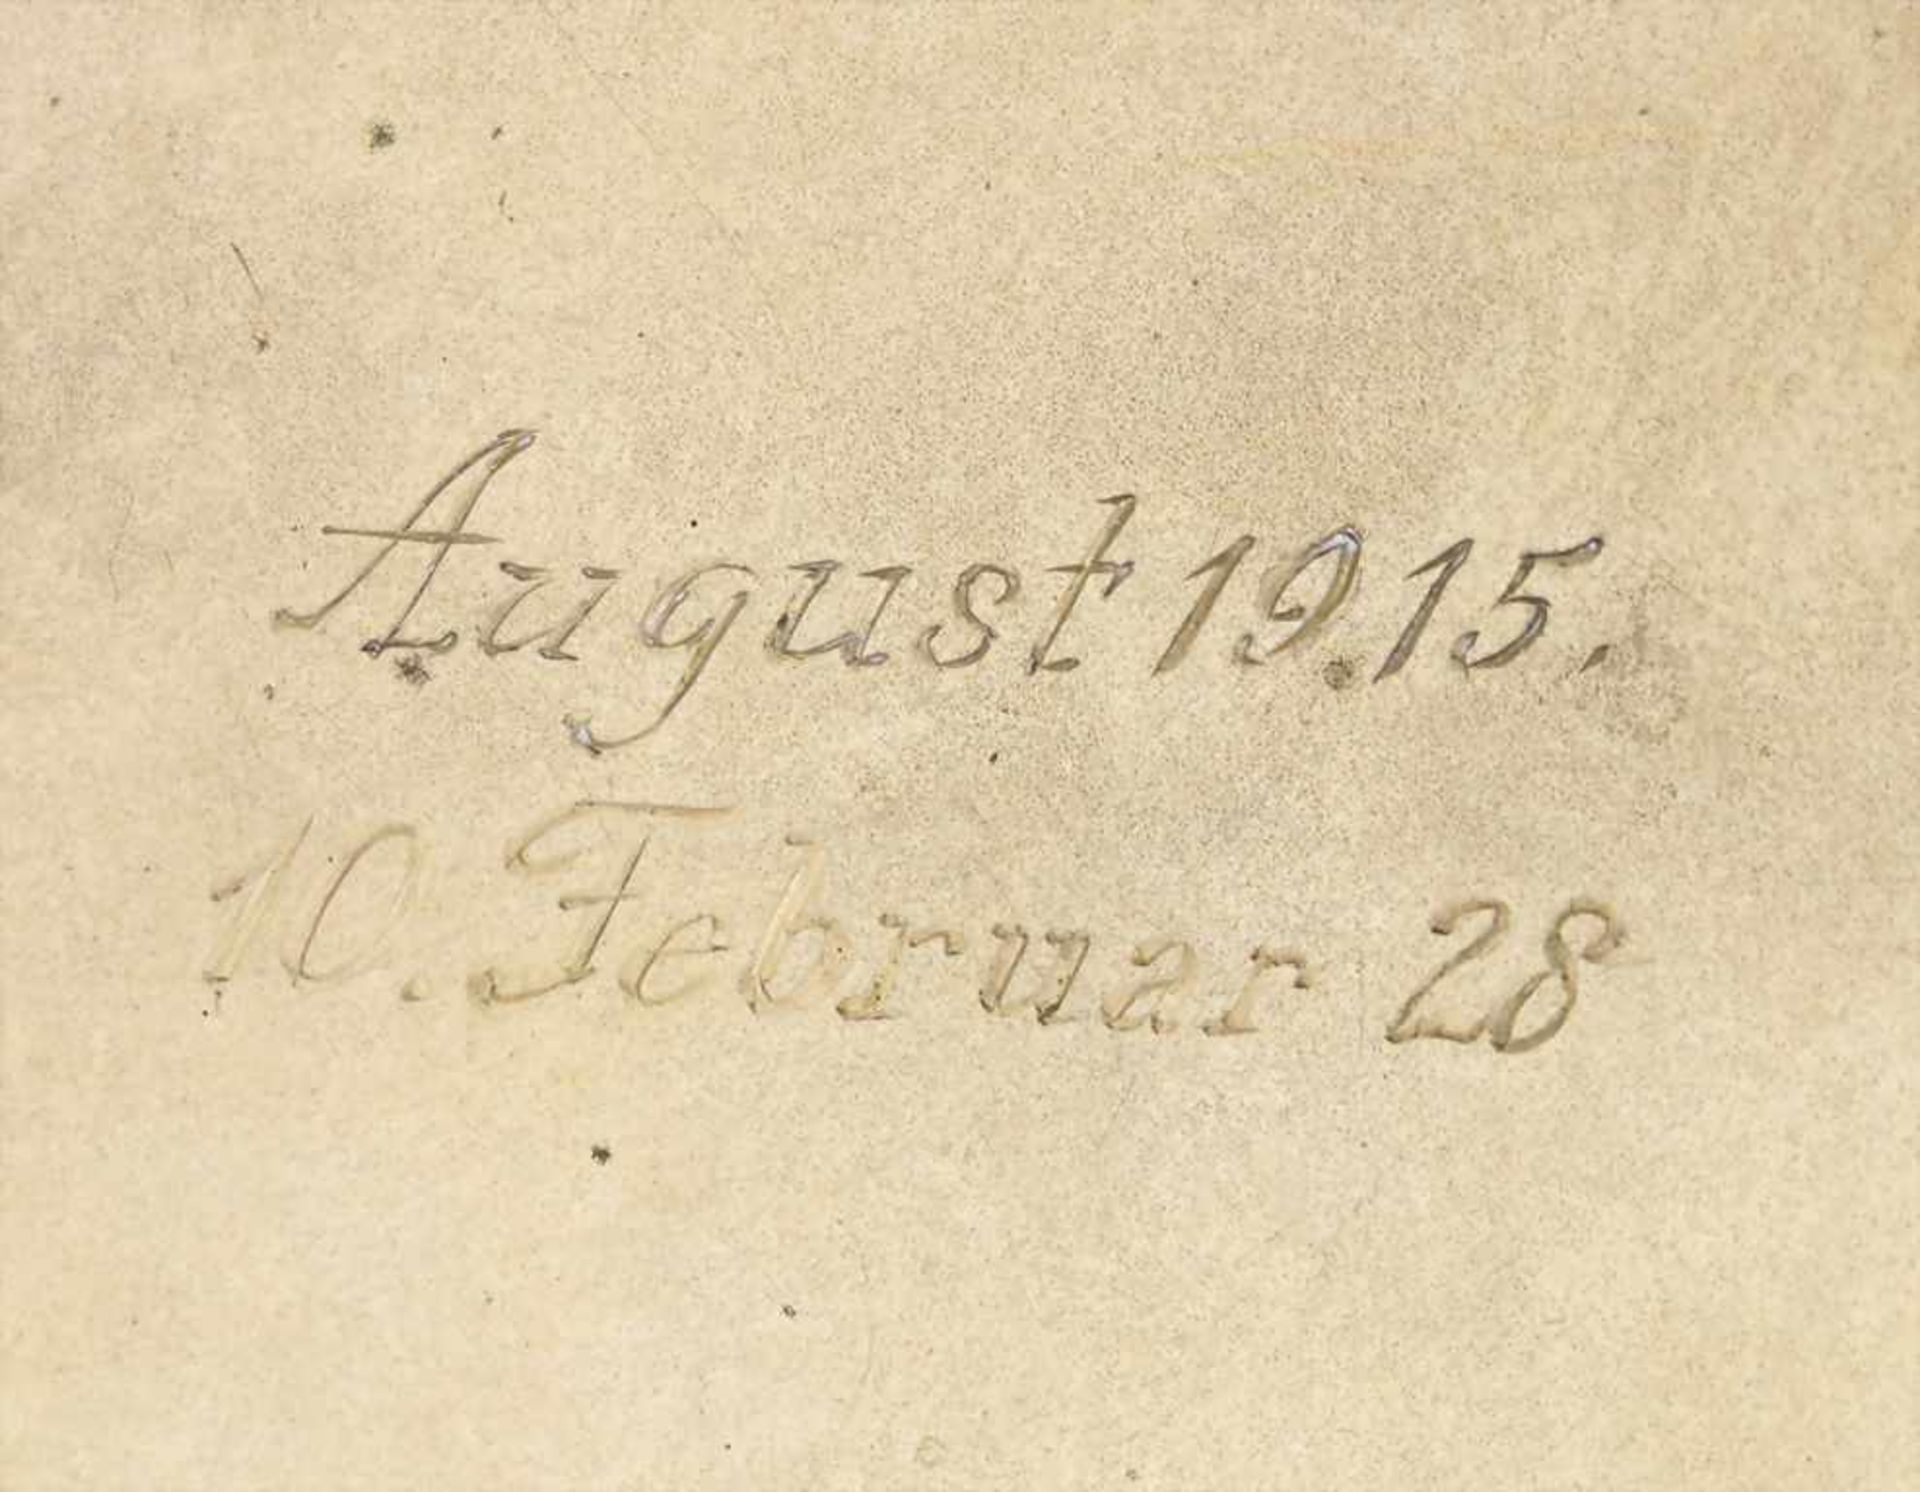 August 1915.
10. Februar 28